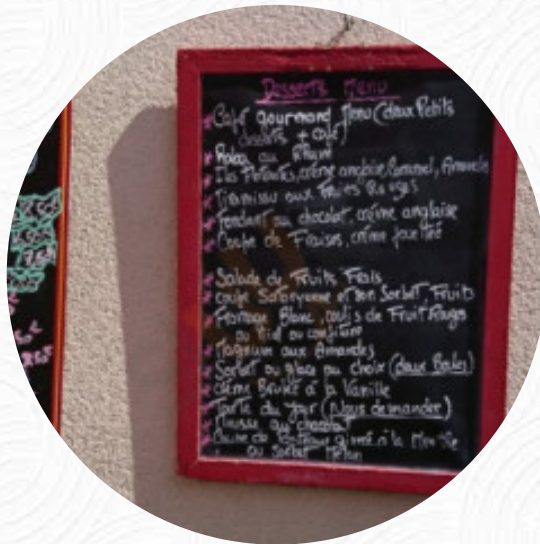 Desserts Menu
Café gourmand Menu (deux Petits
desserts + café)
Baba au Rhum
Iles Flottantes, crème anglaise, Caramel, Amandes
Tiramisu aux Fruits Rouges
Fondant au chocolat, crème anglaise
Coupe de Fraises, crème fouettée
Salade de Fruits Frais
coupe et son Sorbet Fruits
Fromage Blanc, coulis de Fruit Rouges
ou Miel ou confiture
Magnum aux Amandes
Sorbet ou glace au choix (deux Boules)
Crème Brulée à la Vanille
Tarte du jour (Nous demander)
Mousse au chocolat
Menthe
ou Sorbet Melon